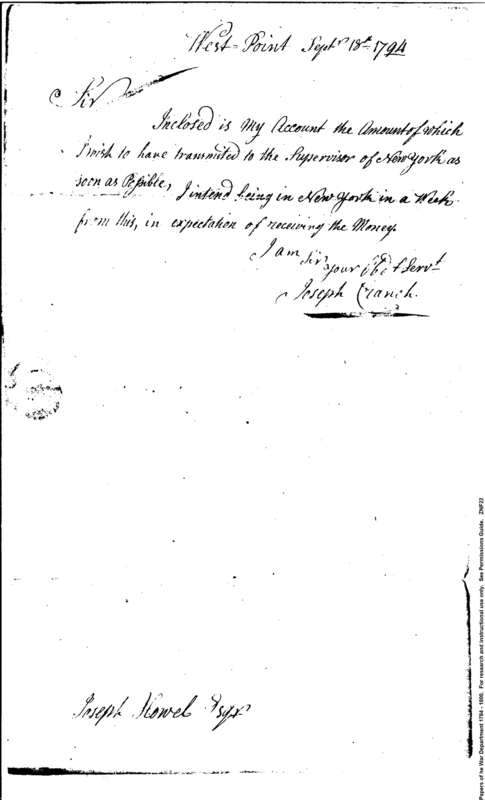 West-Point Septr 18th 1794
Sir
Inclosed is My Account the Amount of which
I wish to have transmited to the Supervisor of New York as
soon as Possible, I intend being in New York in a Week
from this, in expectation of receiving the Money.
I am
Sir
your Obet Servt
Joseph Cranch.
Joseph Howel Esqr
Papers of he War Department 1784 - 1800. For research and instructional use only. See Permissions Guide. ZNF22